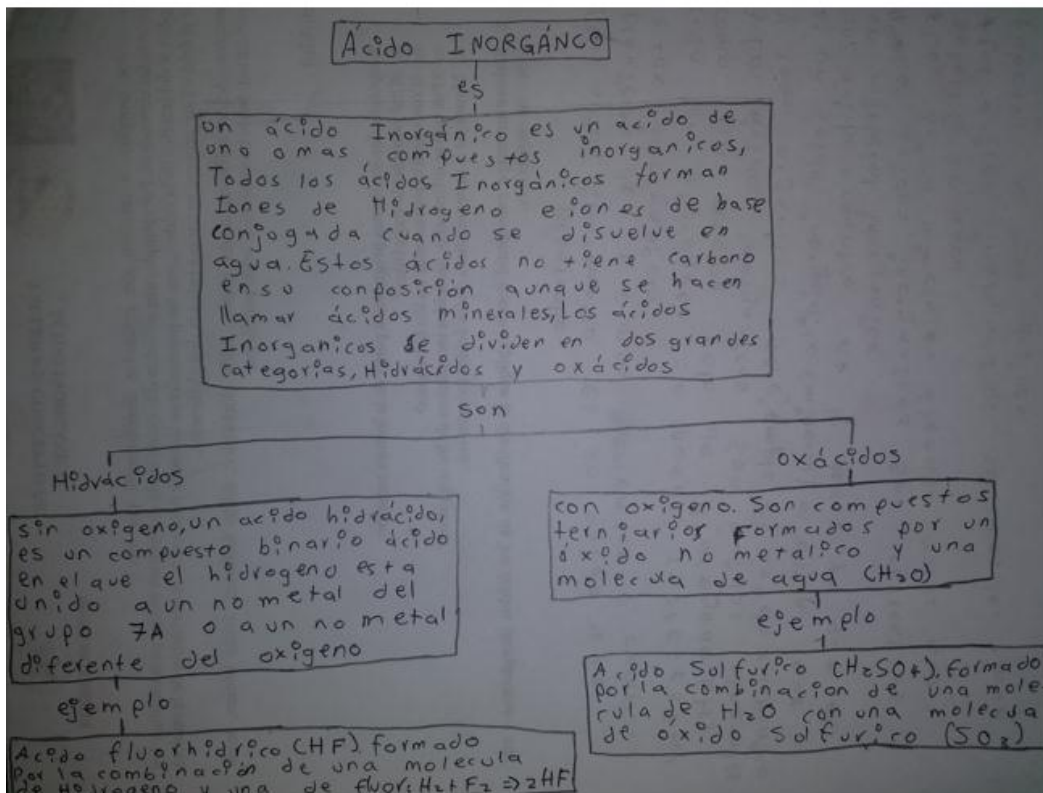 Ácido INORGÁNCO
es
un ácido Inorgánico es un acido de
uno o mas compuestos inorganicos,
Todos los ácidos Inorgánicos forman
Iones de Hidrogeno e iones de base
conjogada cuando se disuelve en
agua. Estos ácidos no tiene carbono
en so conposición aunque se hacen
llamar ácidos minerales, Los ácidos
Inorganicos se dividen en dos grandes
categorías, Hidrácidos y oxácidos
son
Hidrácidos
sin oxígeno, un acido hidrácido,
es un compuesto binario ácido
en el que el hidrogeno esta
unido a un no metal del
grupo 7A o a un no metal
diferente del oxigeno
ejemplo
Acido fluorhidrico (HF). formado
por la combinación de una molecula
de Hidrogeno y una de fluor: H₂ + F₂ => 2HF
oxácidos
con oxigeno. Son compuestos
terniarios Formados por un
óxido no metalico y una
molecula de agua (H₂O)
ejemplo
Acido Solfurico (H₂SO₄). formado
por la combinacion de una mole
cula de H₂O con una molecula
de óxido Solfurico (SO₃)